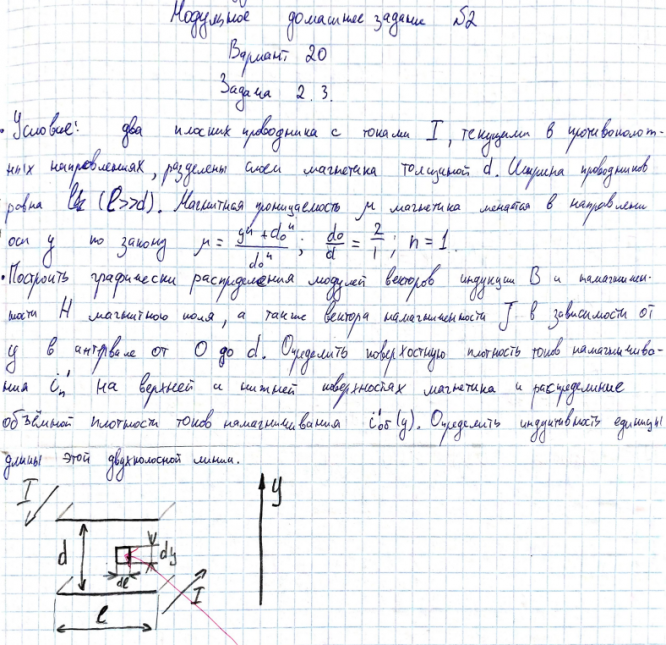 Модульное домашнее задание №2
Вариант 20
Задача 2.3.
• Условие: два плоских проводника с токами I, текущими в противополож-
ных направлениях, разделены слоем магнетика толщиной d. Ширина проводников
равна b (l>>d). Магнитная проницаемость μ магнетика меняется в направлении
оси y по закону μ = (yⁿ + d₀ⁿ)/d₀ⁿ ; d₀/d = 2/1 ; n = 1.
• Построить графически распределения модулей векторов индукции B и намагничен-
ности H магнитного поля, а также вектора намагниченности J в зависимости от
y в интервале от 0 до d. Определить поверхостную плотность токов намагничива-
ния i'ₙ на верхней и нижней поверхностях магнетика и распределение
объёмной плотности токов намагничивания i'об(y). Определить индуктивность единицы
длины этой двухполосной линии.
I
y
d
dy
dl
I
l